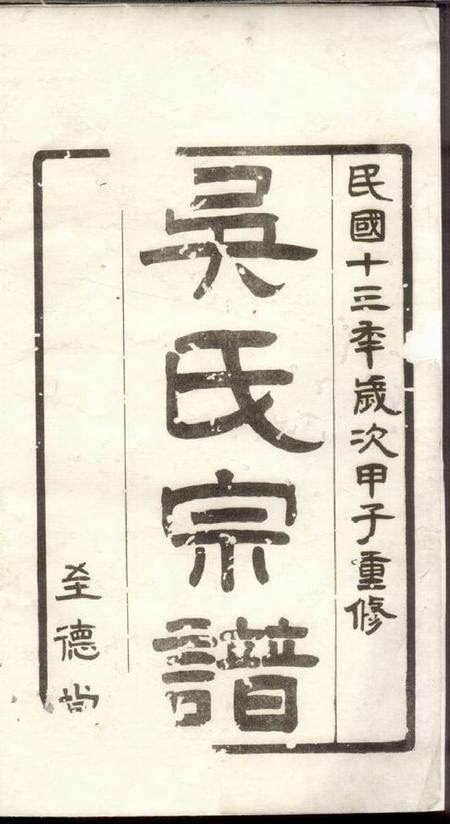 民國十三年歲次甲子重修
吳氏宗譜
至德